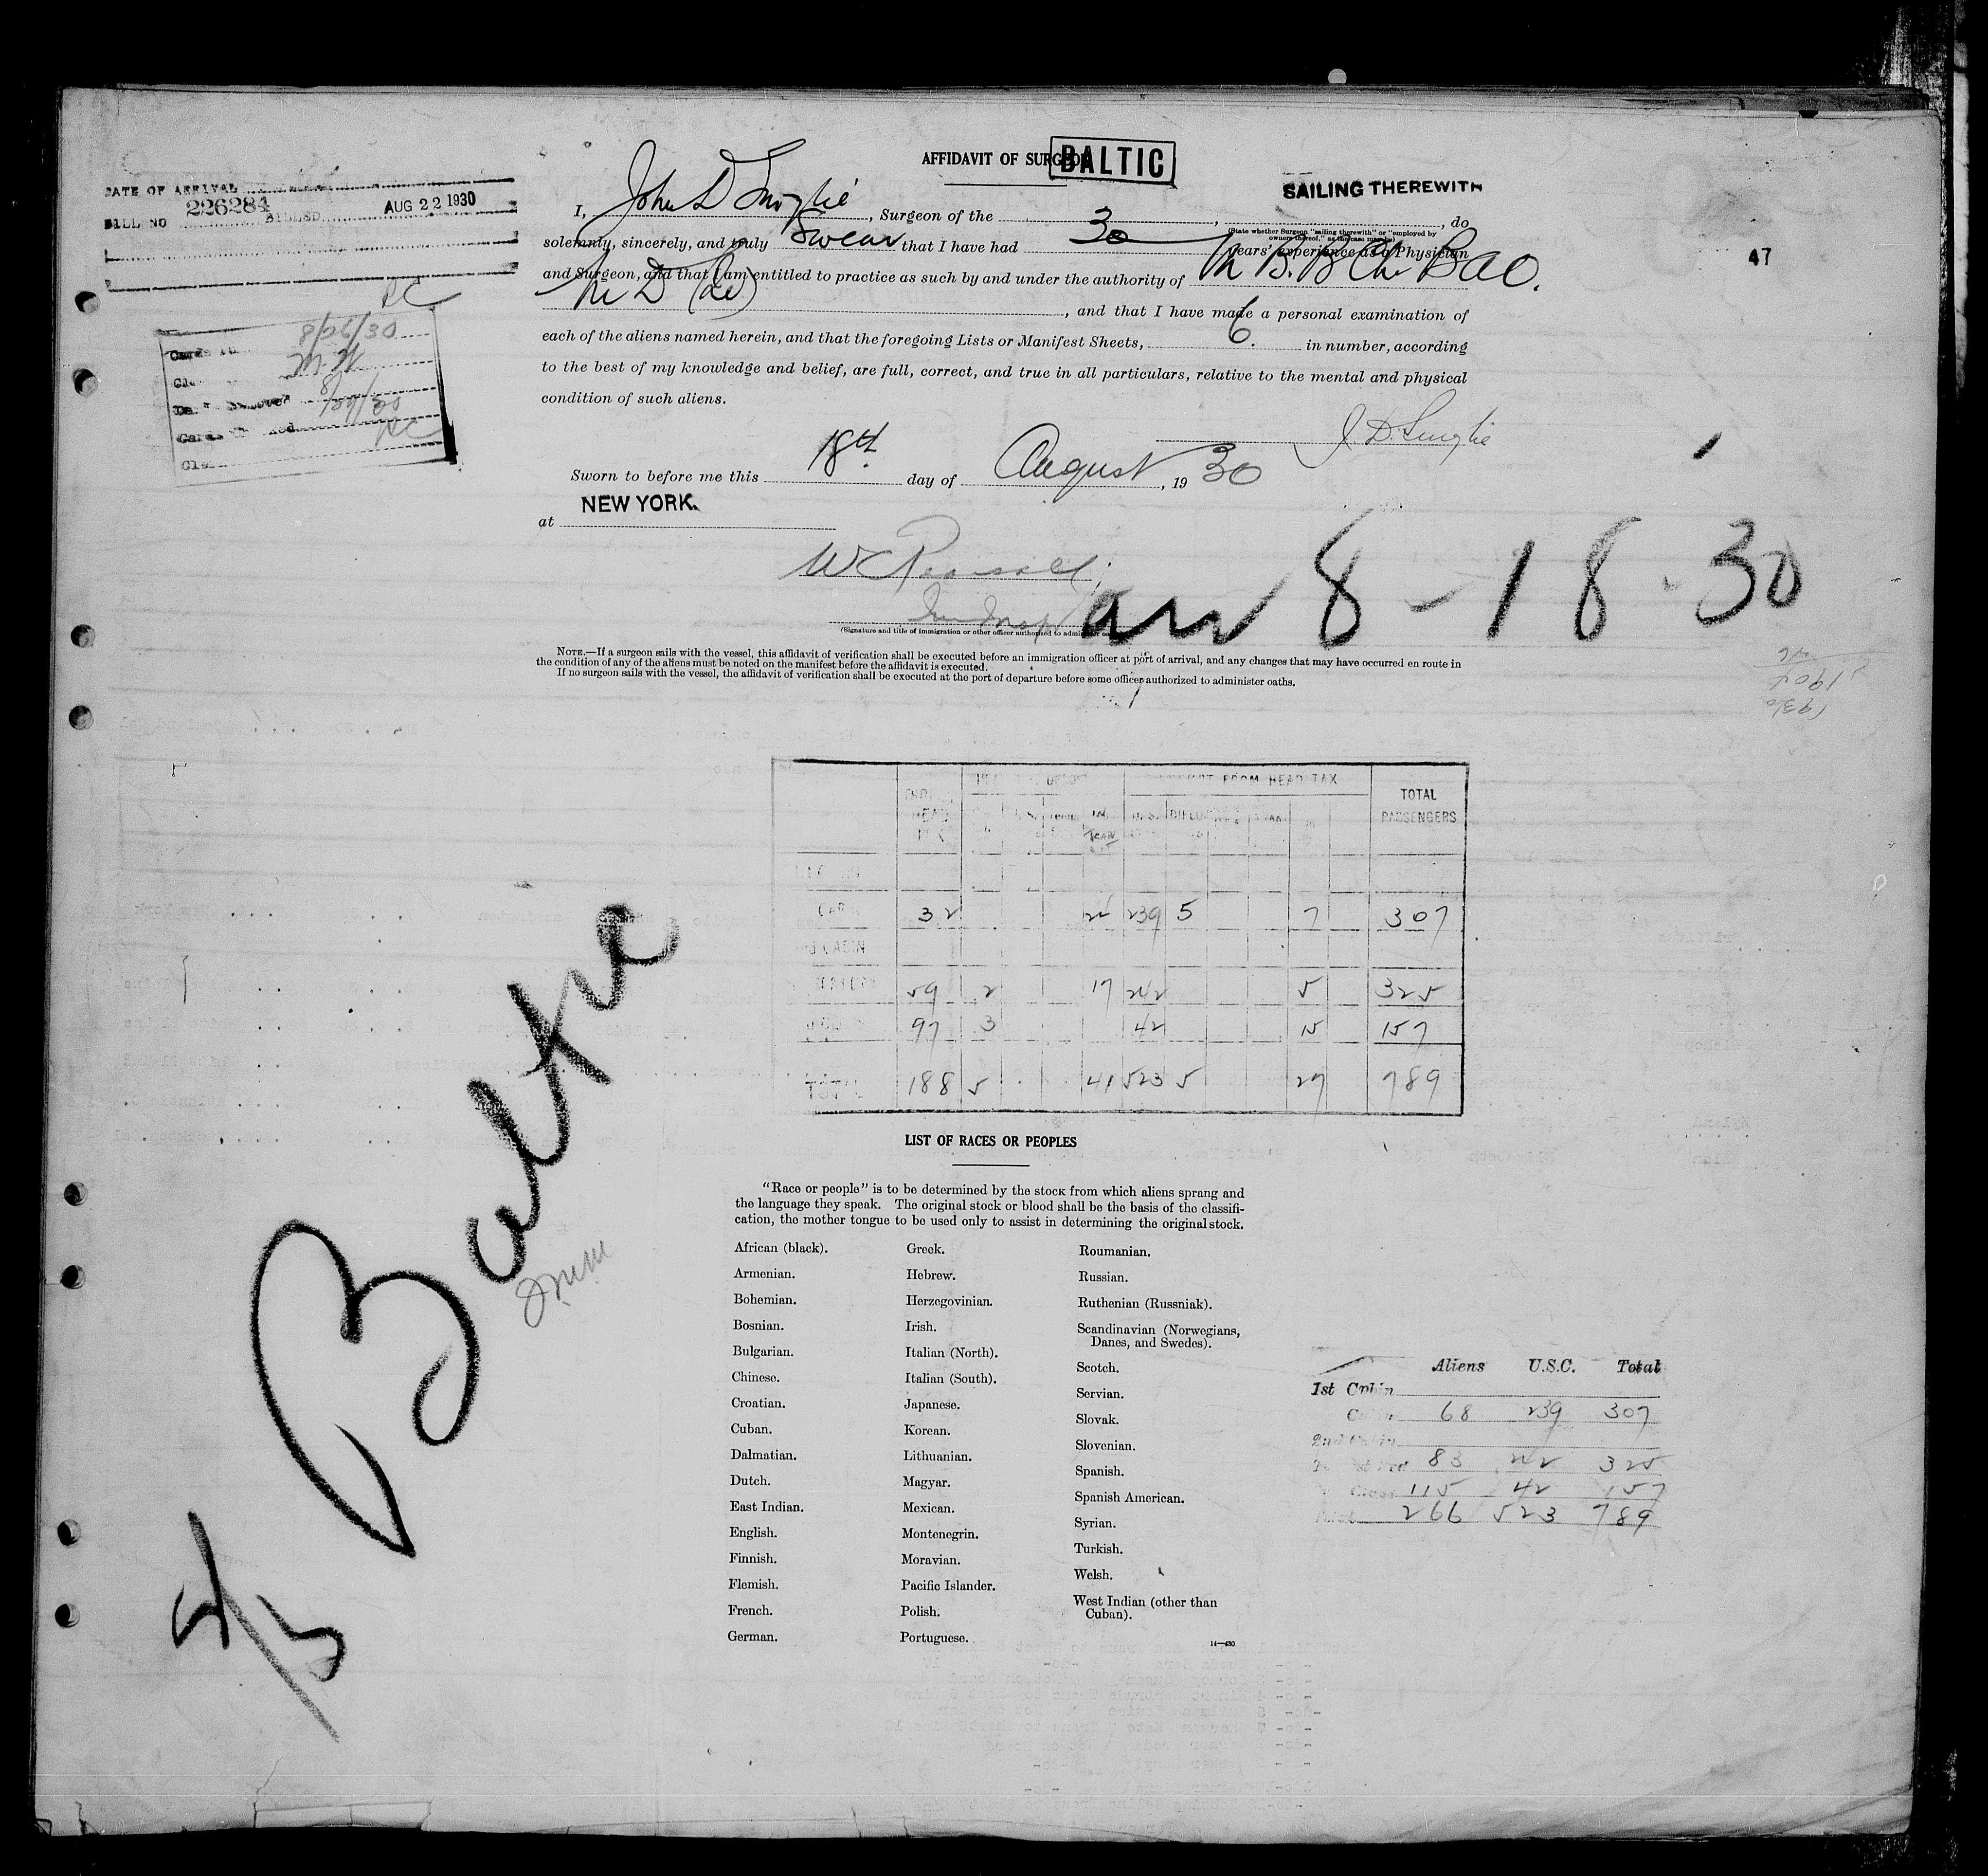 AFFIDAVIT OF SURGEON
BALTIC
SAILING THEREWITH
DATE OF ARRIVAL
BILL NO 226284 BILLED AUG 22 1930
I, John D , Surgeon of the , , do
(State whether Surgeon "sailing therewith" or "employed by owners thereof," as the case may be)
solemnly, sincerely, and truly Swear that I have had 30 years' experience as a Physician
and Surgeon, and that I am entitled to practice as such by and under the authority of M B. B Ch. BAO.
M D , and that I have made a personal examination of
each of the aliens named herein, and that the foregoing Lists or Manifest Sheets, 6. in number, according
to the best of my knowledge and belief, are full, correct, and true in all particulars, relative to the mental and physical
condition of such aliens.
47
8/26/30
Sworn to before me this 18th day of August, 19 30
at NEW YORK.
arr 8-18-30
(Signature and title of immigration or other officer authorized to administer
NOTE.—If a surgeon sails with the vessel, this affidavit of verification shall be executed before an immigration officer at port of arrival, and any changes that may have occurred en route in
the condition of any of the aliens must be noted on the manifest before the affidavit is executed.
If no surgeon sails with the vessel, the affidavit of verification shall be executed at the port of departure before some officer authorized to administer oaths.
FROM HEAD TAX
TOTAL PASSENGERS
32 239 5 7 307
CABIN
59 2 17 242 5 325
97 3 42 15 157
TOTAL 188 5 41 523 5 27 789
Baltic
LIST OF RACES OR PEOPLES
"Race or people" is to be determined by the stock from which aliens sprang and
the language they speak. The original stock or blood shall be the basis of the classifi-
cation, the mother tongue to be used only to assist in determining the original stock.
African (black).
Armenian.
Bohemian.
Bosnian.
Bulgarian.
Chinese.
Croatian.
Cuban.
Dalmatian.
Dutch.
East Indian.
English.
Finnish.
Flemish.
French.
German.
Greek.
Hebrew.
Herzegovinian.
Irish.
Italian (North).
Italian (South).
Japanese.
Korean.
Lithuanian.
Magyar.
Mexican.
Montenegrin.
Moravian.
Pacific Islander.
Polish.
Portuguese.
Roumanian.
Russian.
Ruthenian (Russniak).
Scandinavian (Norwegians,
Danes, and Swedes).
Scotch.
Servian.
Slovak.
Slovenian.
Spanish.
Spanish American.
Syrian.
Turkish.
Welsh.
West Indian (other than
Cuban).
14—430
Aliens U.S.C. Total
1st Cabin
68 239 307
2nd Cabin
83 242 325
115 42 157
266 523 789